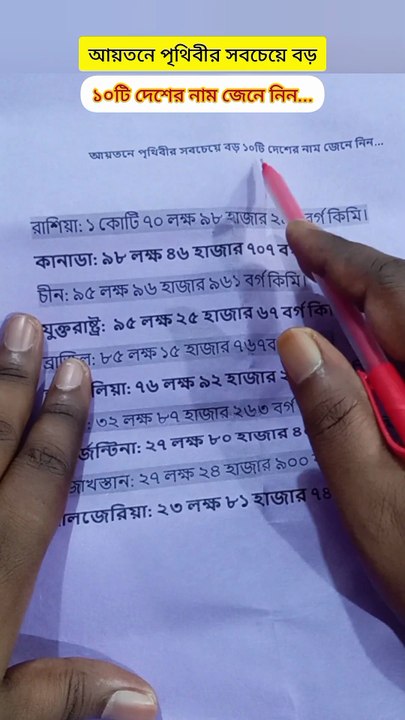 আয়তনে পৃথিবীর সবচেয়ে বড়
১০টি দেশের নাম জেনে নিন...
আয়তনে পৃথিবীর সবচেয়ে বড় ১০টি দেশের নাম জেনে নিন...
রাশিয়া: ১ কোটি ৭০ লক্ষ ৯৮ হাজার বর্গ কিমি।
কানাডা: ৯৮ লক্ষ ৪৬ হাজার ৭০৭
চীন: ৯৫ লক্ষ ৯৬ হাজার ৯৬১ বর্গ কিমি।
যুক্তরাষ্ট্র: ৯৫ লক্ষ ২৫ হাজার ৬৭ বর্গ কি
৮৫ লক্ষ ১৫ হাজার ৭৬৭ব
লিয়া: ৭৬ লক্ষ ৯২ হাজার
: ৩২ লক্ষ ৮৭ হাজার ২৬৩ বর্গ
র্জেন্টিনা: ২৭ লক্ষ ৮০ হাজার
জাখস্তান: ২৭ লক্ষ ২৪ হাজার ৯০০
লজেরিয়া: ২৩ লক্ষ ৮১ হাজার ৭৪